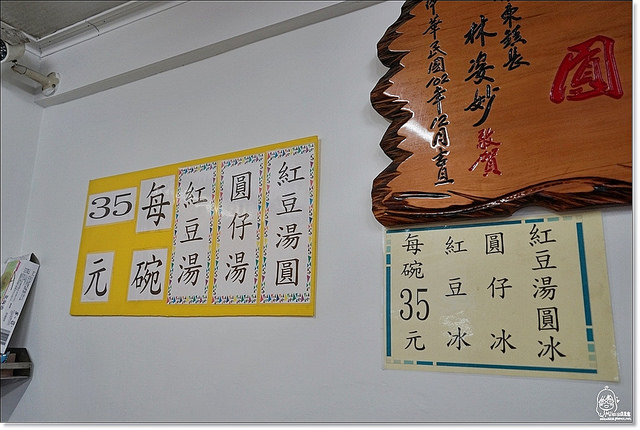 紅豆湯圓
圓仔湯
紅豆湯
每碗
35元
圓
東鎮長
林姿妙
敬賀
中華民國102年12月吉旦
紅豆湯圓冰
圓仔冰
紅豆冰
每碗35元